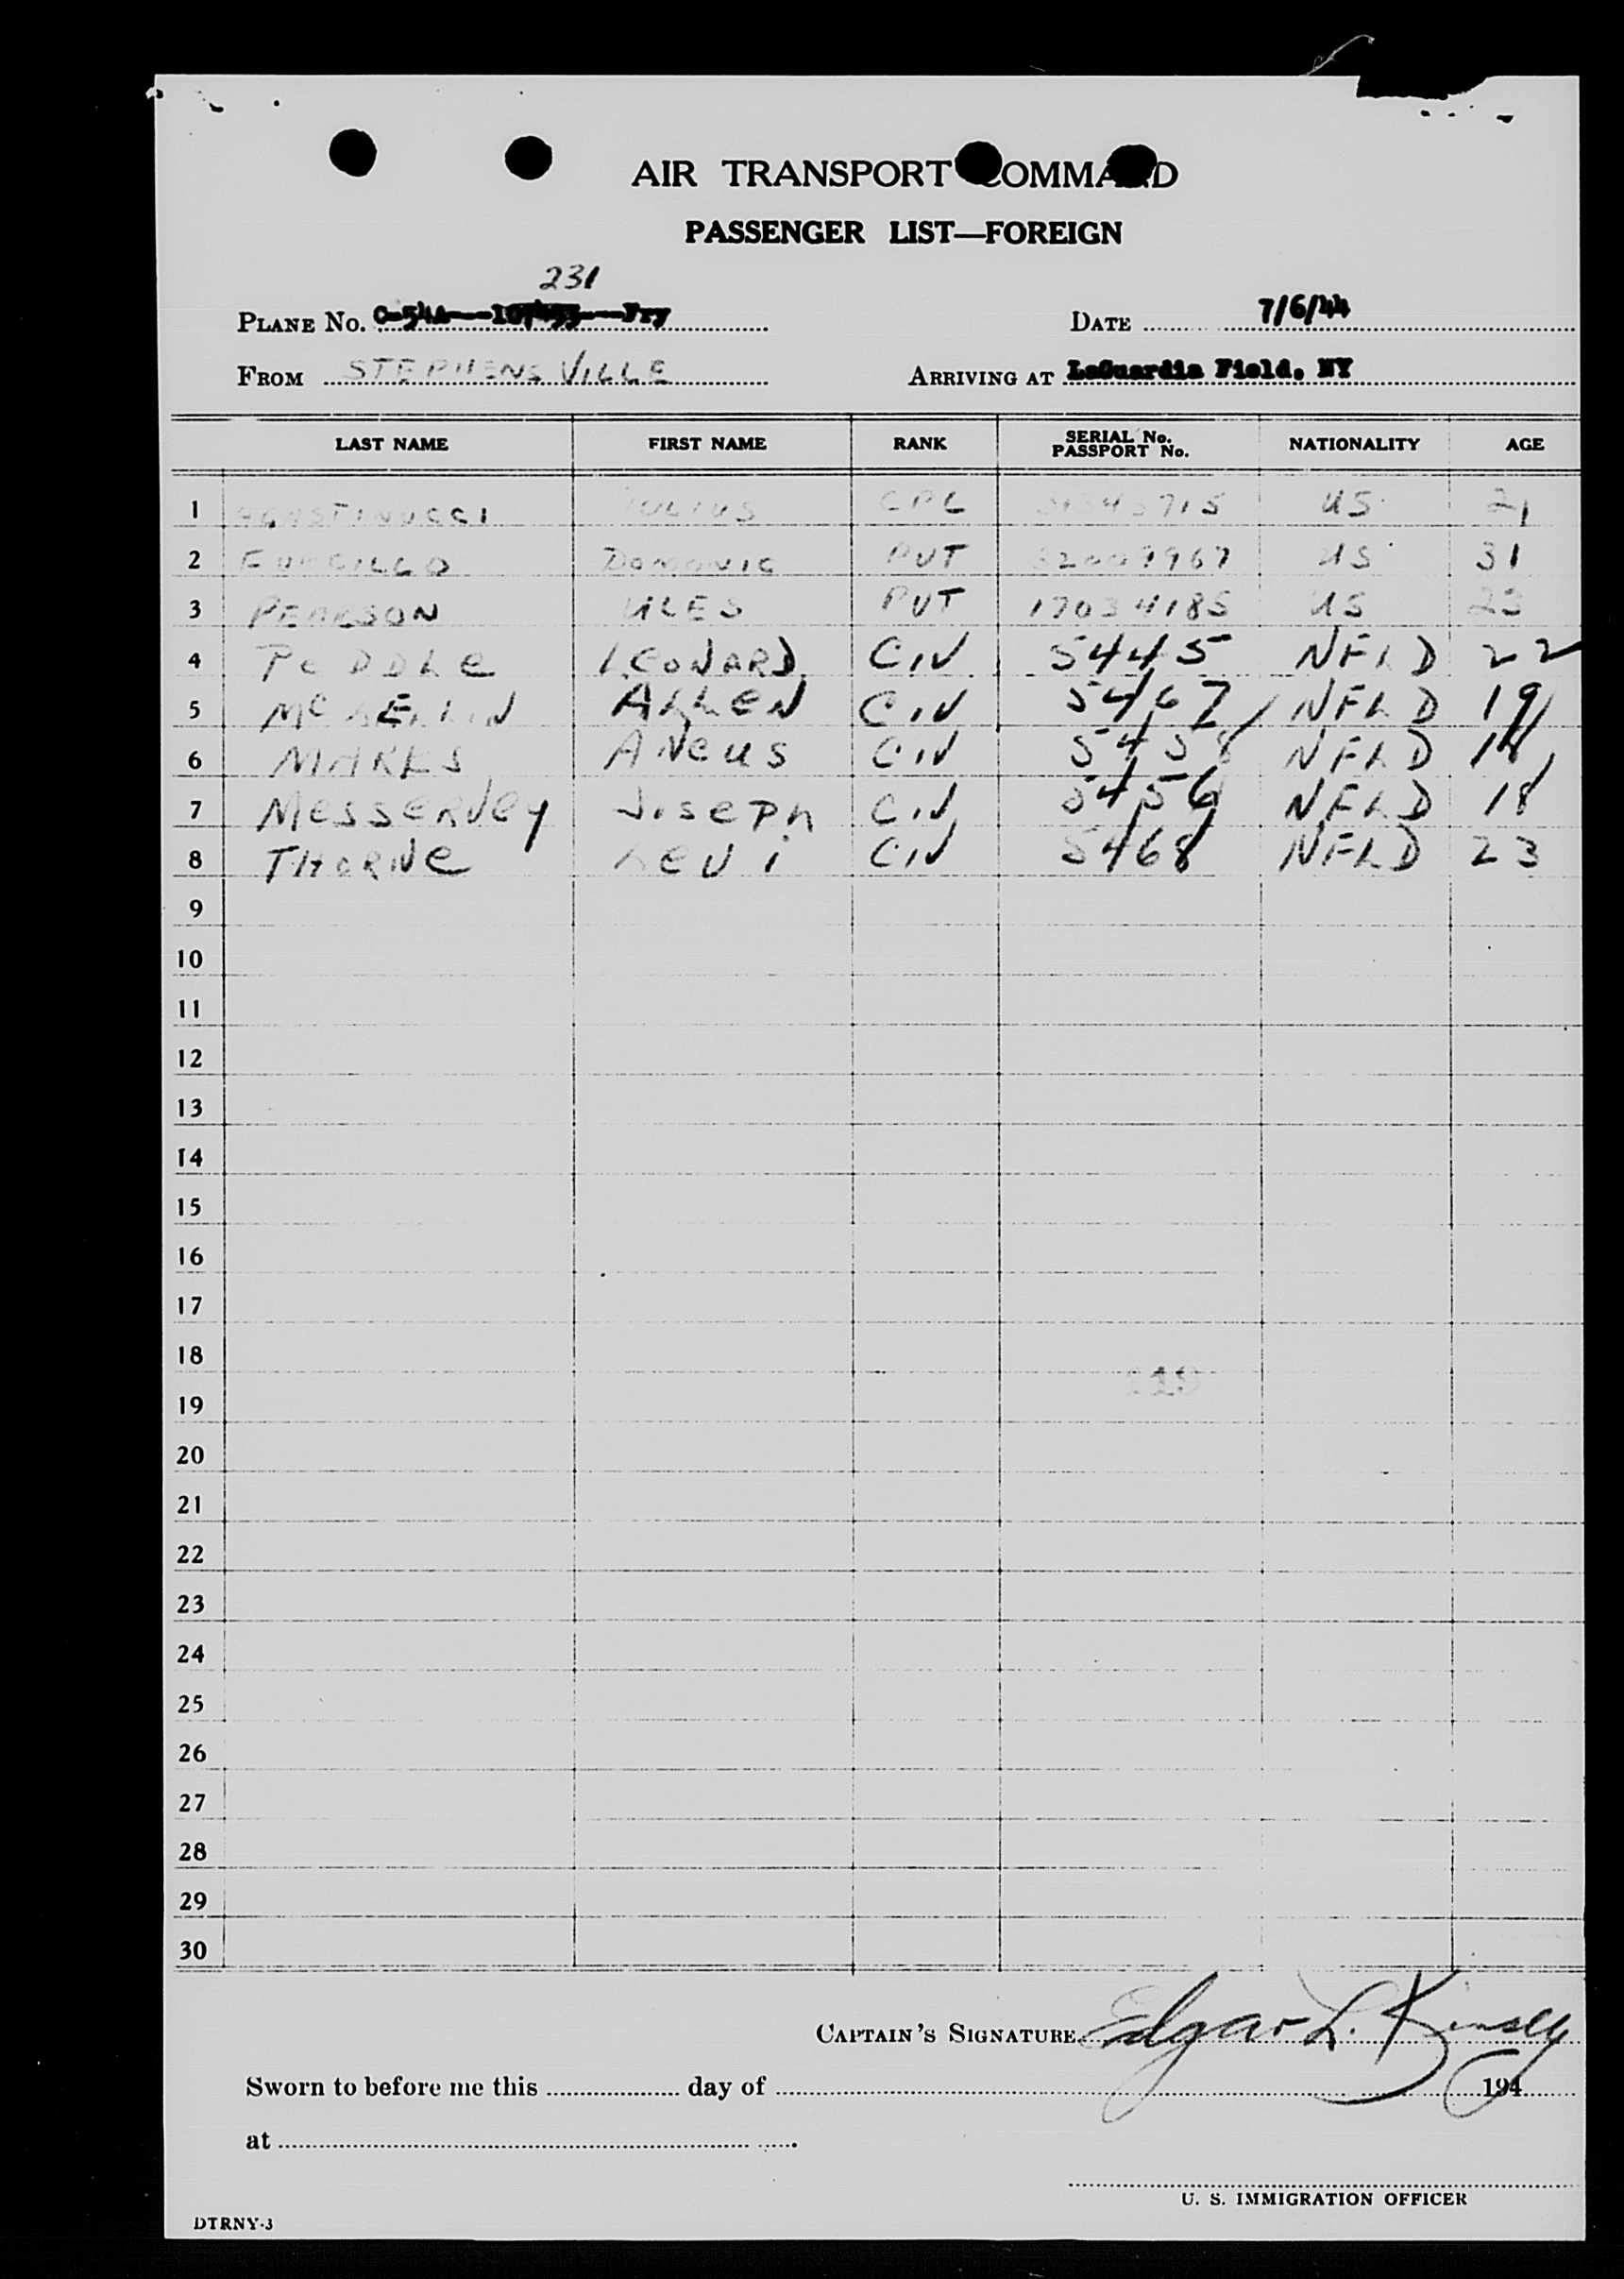 AIR TRANSPORT COMMAND
PASSENGER LIST—FOREIGN
231
PLANE No. C-54A Fry DATE 7/6/44
FROM STEPHENSVILLE ARRIVING AT LaGuardia Field, NY
LAST NAME FIRST NAME RANK SERIAL No. PASSPORT No. NATIONALITY AGE
1 AGOSTINUCCI JULIUS CPL US 21
2 DOMONIC PVT US 31
3 PEARSON PVT 17034185 US 23
4 PEDDLE LEONARD CIV 5445 NFLD 22
5 ALLEN CIV 5467 NFLD 19
6 MARKS ANGUS CIV 5458 NFLD
7 MESSERVEY JOSEPH CIV 5456 NFLD 18
8 THORNE LEVI CIV 5468 NFLD 23
9
10
11
12
13
14
15
16
17
18
19
20
21
22
23
24
25
26
27
28
29
30
CAPTAIN'S SIGNATURE Edgar L. Kinsley
Sworn to before me this day of 194
at
U. S. IMMIGRATION OFFICER
DTRNY-3